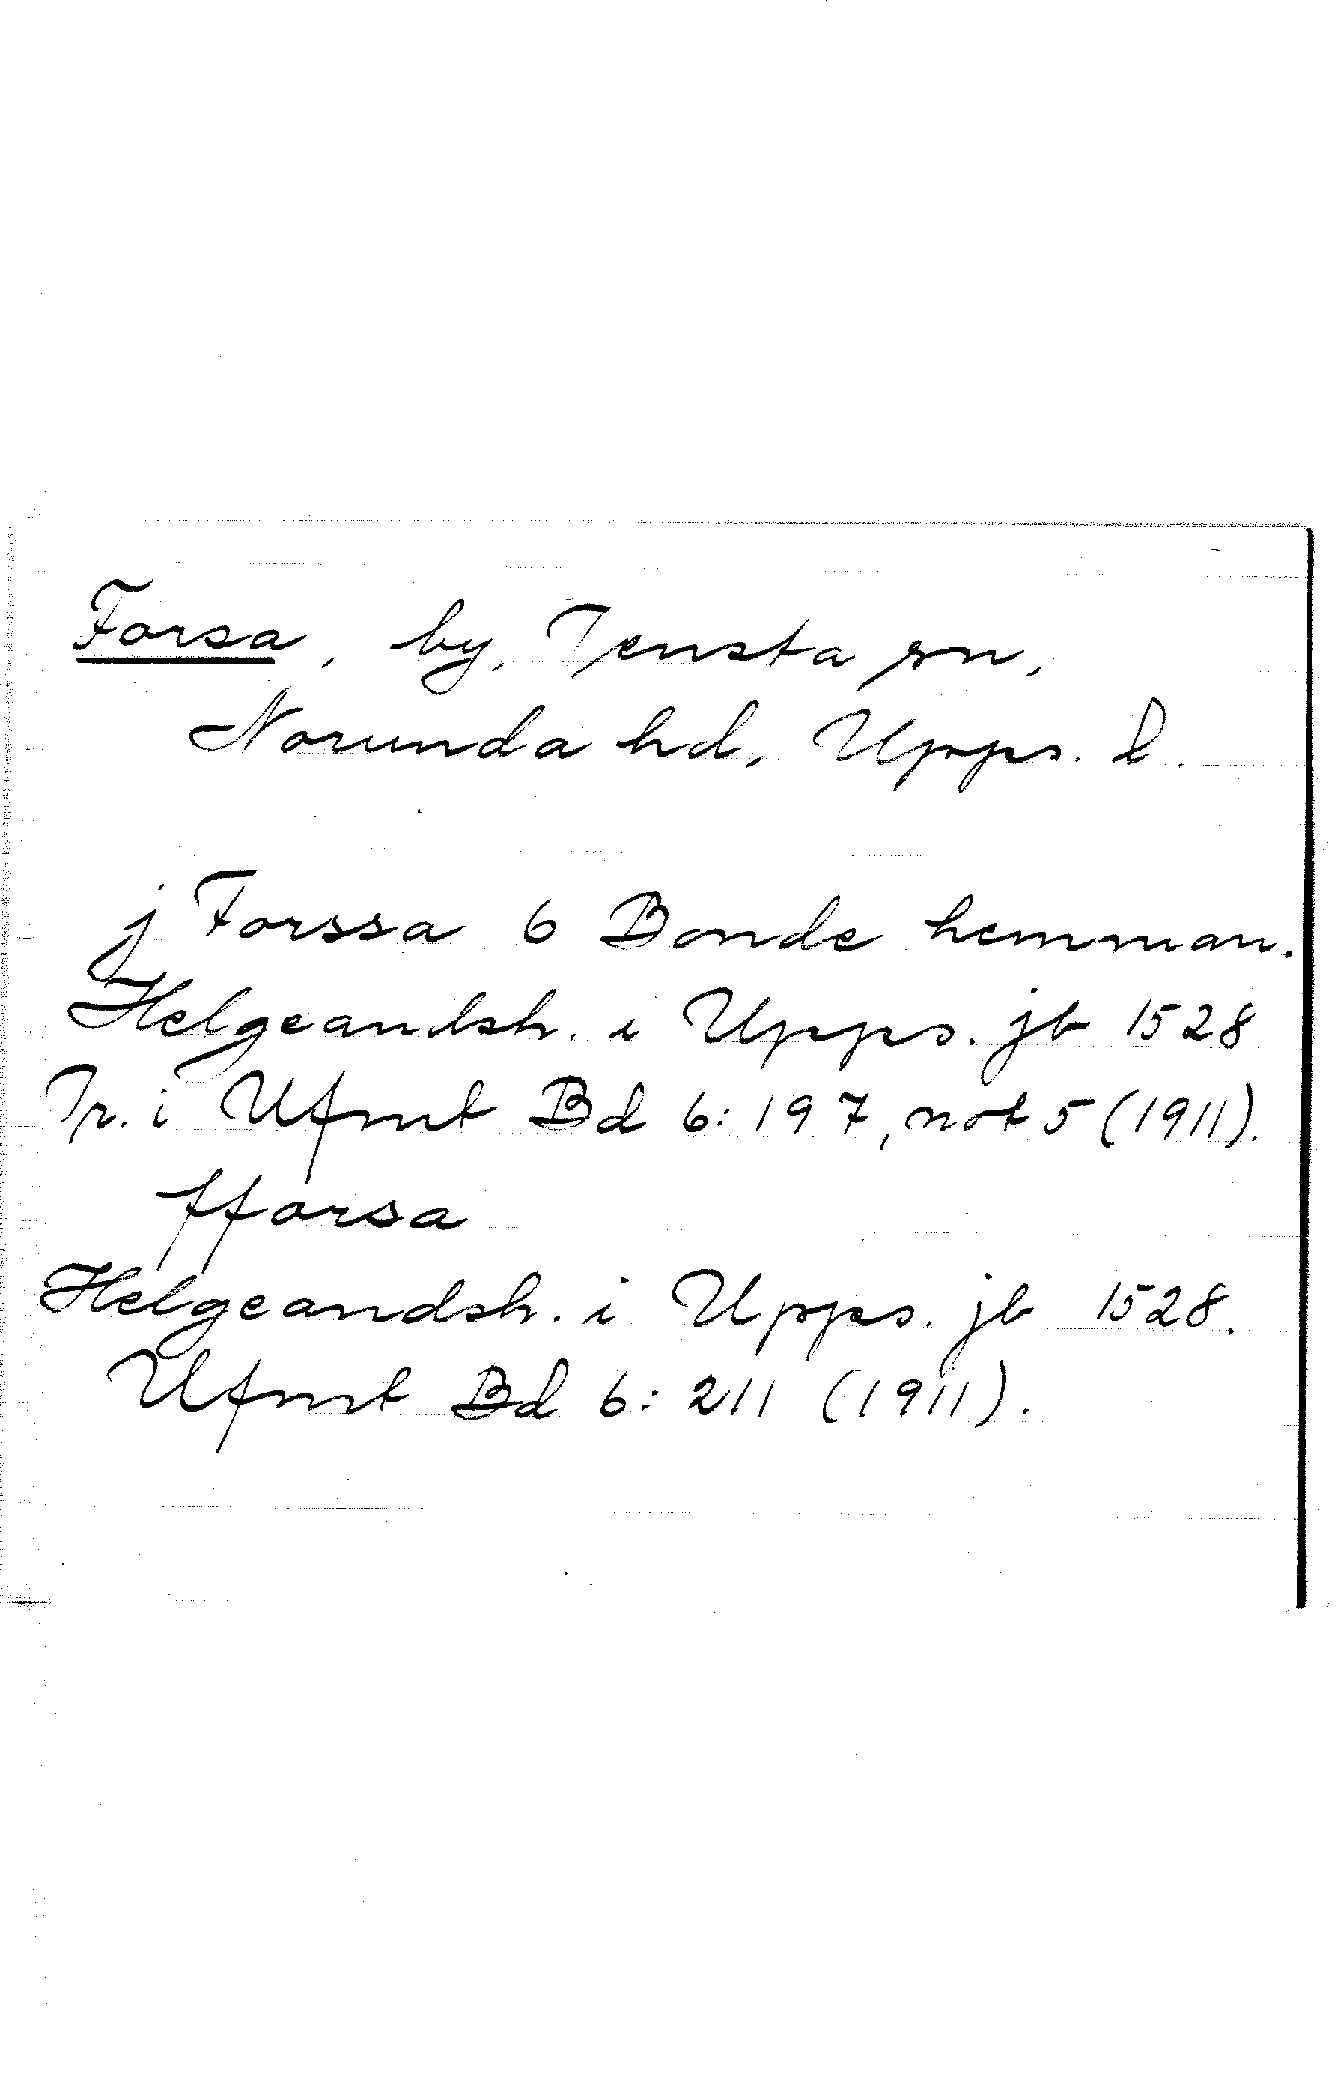 Forsa, by, Tensta sn,
Norunda hd, Upps. l.
j Forssa 6 Bonde hemman.
Helgeandsh. i Upps. jb 1528
Tr. i Ufmt Bd 6:197, not 5 (1911).
fforsa
Helgeandsh. i Upps. jb 1528.
Ufmt Bd 6:211 (1911).